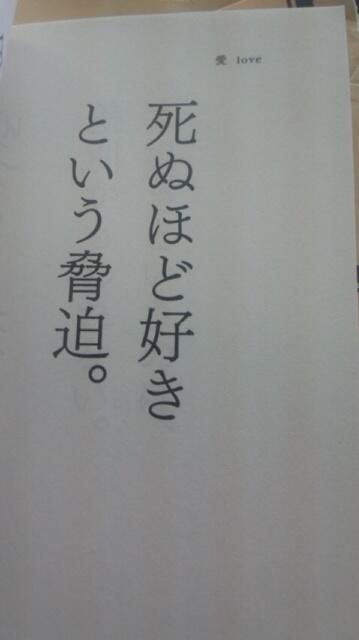 愛 love
死ぬほど好き
という脅迫。